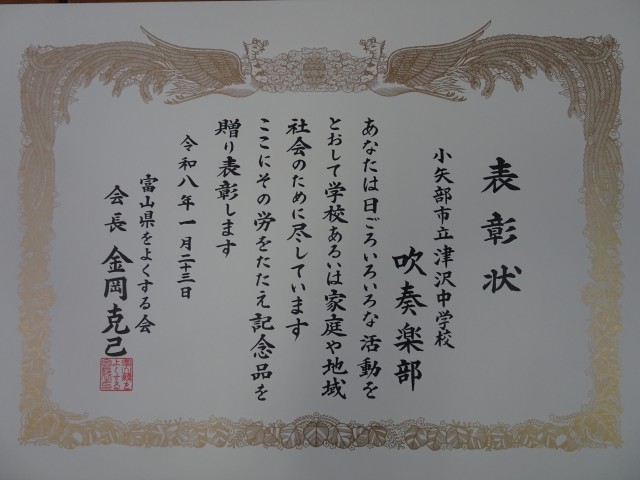 表彰状
小矢部市立津沢中学校
吹奏楽部
あなたは日ごろいろいろな活動を
とおして学校あるいは家庭や地域
社会のために尽しています
ここにその労をたたえ記念品を
贈り表彰します
令和八年一月二十三日
富山県をよくする会
会長 金岡克己